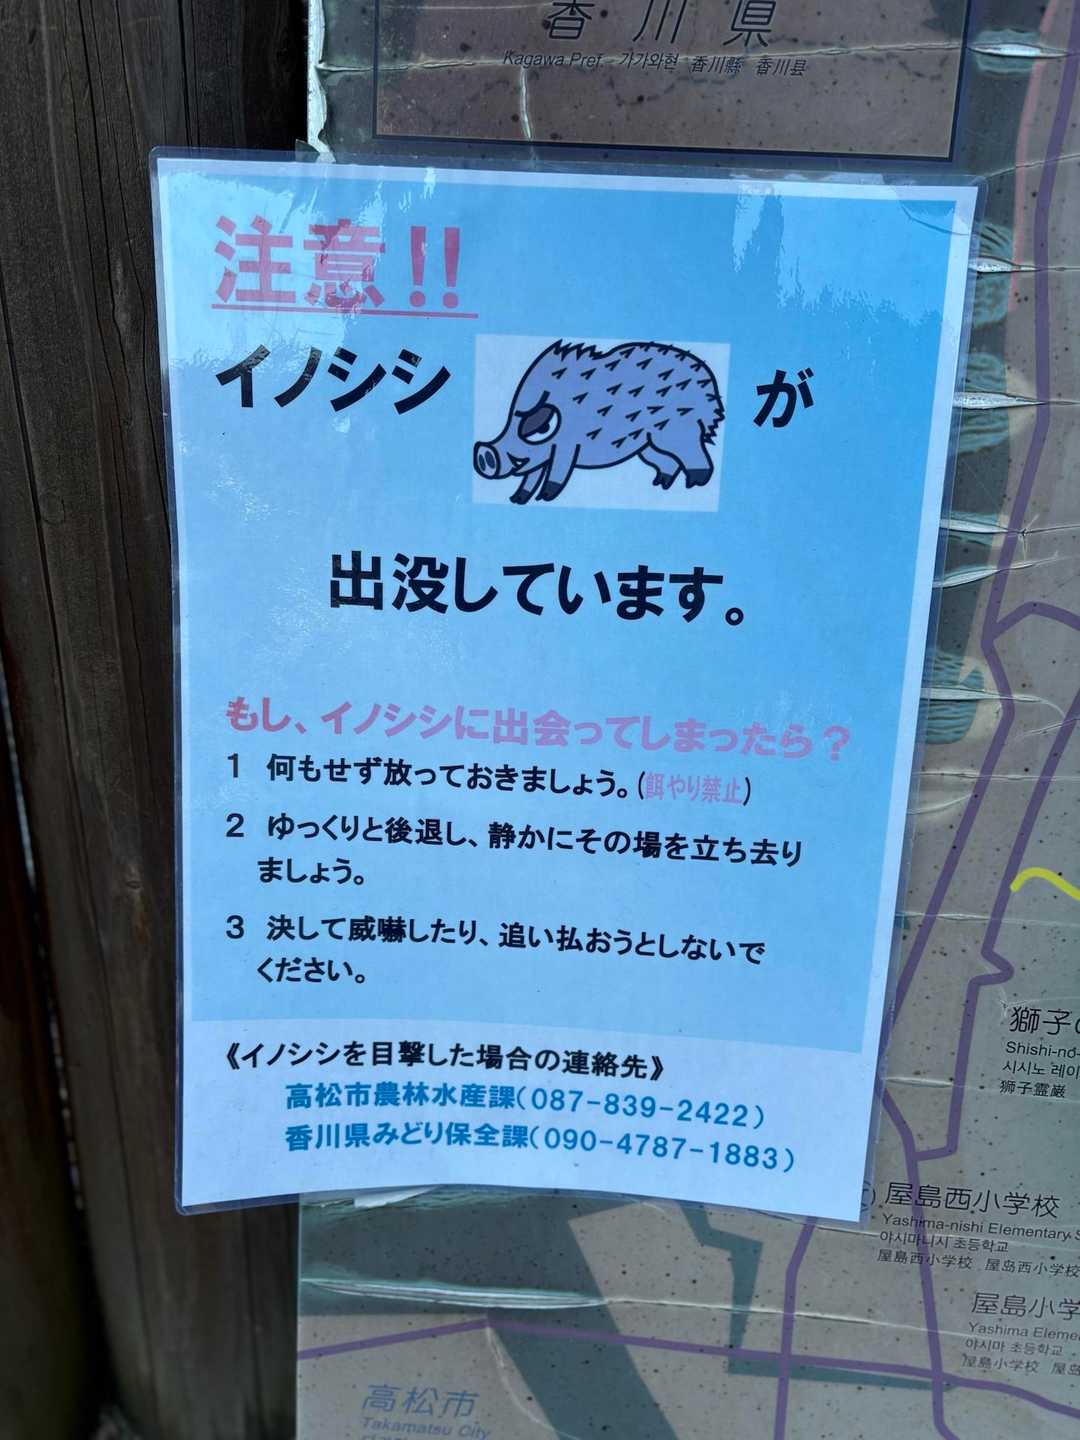 香川県
Kagawa Pref. 가가와현 香川縣 香川县
注意!!
イノシシ が
出没しています。
もし、イノシシに出会ってしまったら？
1 何もせず放っておきましょう。(餌やり禁止)
2 ゆっくりと後退し、静かにその場を立ち去り
ましょう。
3 決して威嚇したり、追い払おうとしないで
ください。
《イノシシを目撃した場合の連絡先》
高松市農林水産課(087-839-2422)
香川県みどり保全課(090-4787-1883)
獅子の
Shishi-no-
시시노 레이
狮子靈巌
屋島西小学校
Yashima-nishi Elementary S
야시마니시 초등학교
屋島西小學校 屋岛西小学校
屋島小学
Yashima Eleme
야시마 초등학교
屋島小學校 屋岛
高松市
Takamatsu City